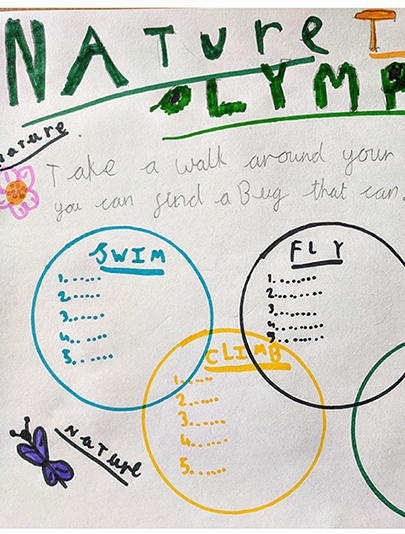 NATURE T
OLYMP
Nature
Take a walk around your
you can find a Bug that can.
SWIM
1......
2......
3......
4......
5......
FLY
1..........
2..........
3..........
4..........
5..........
CLIMB
1......
2......
3......
4......
5......
NATURE